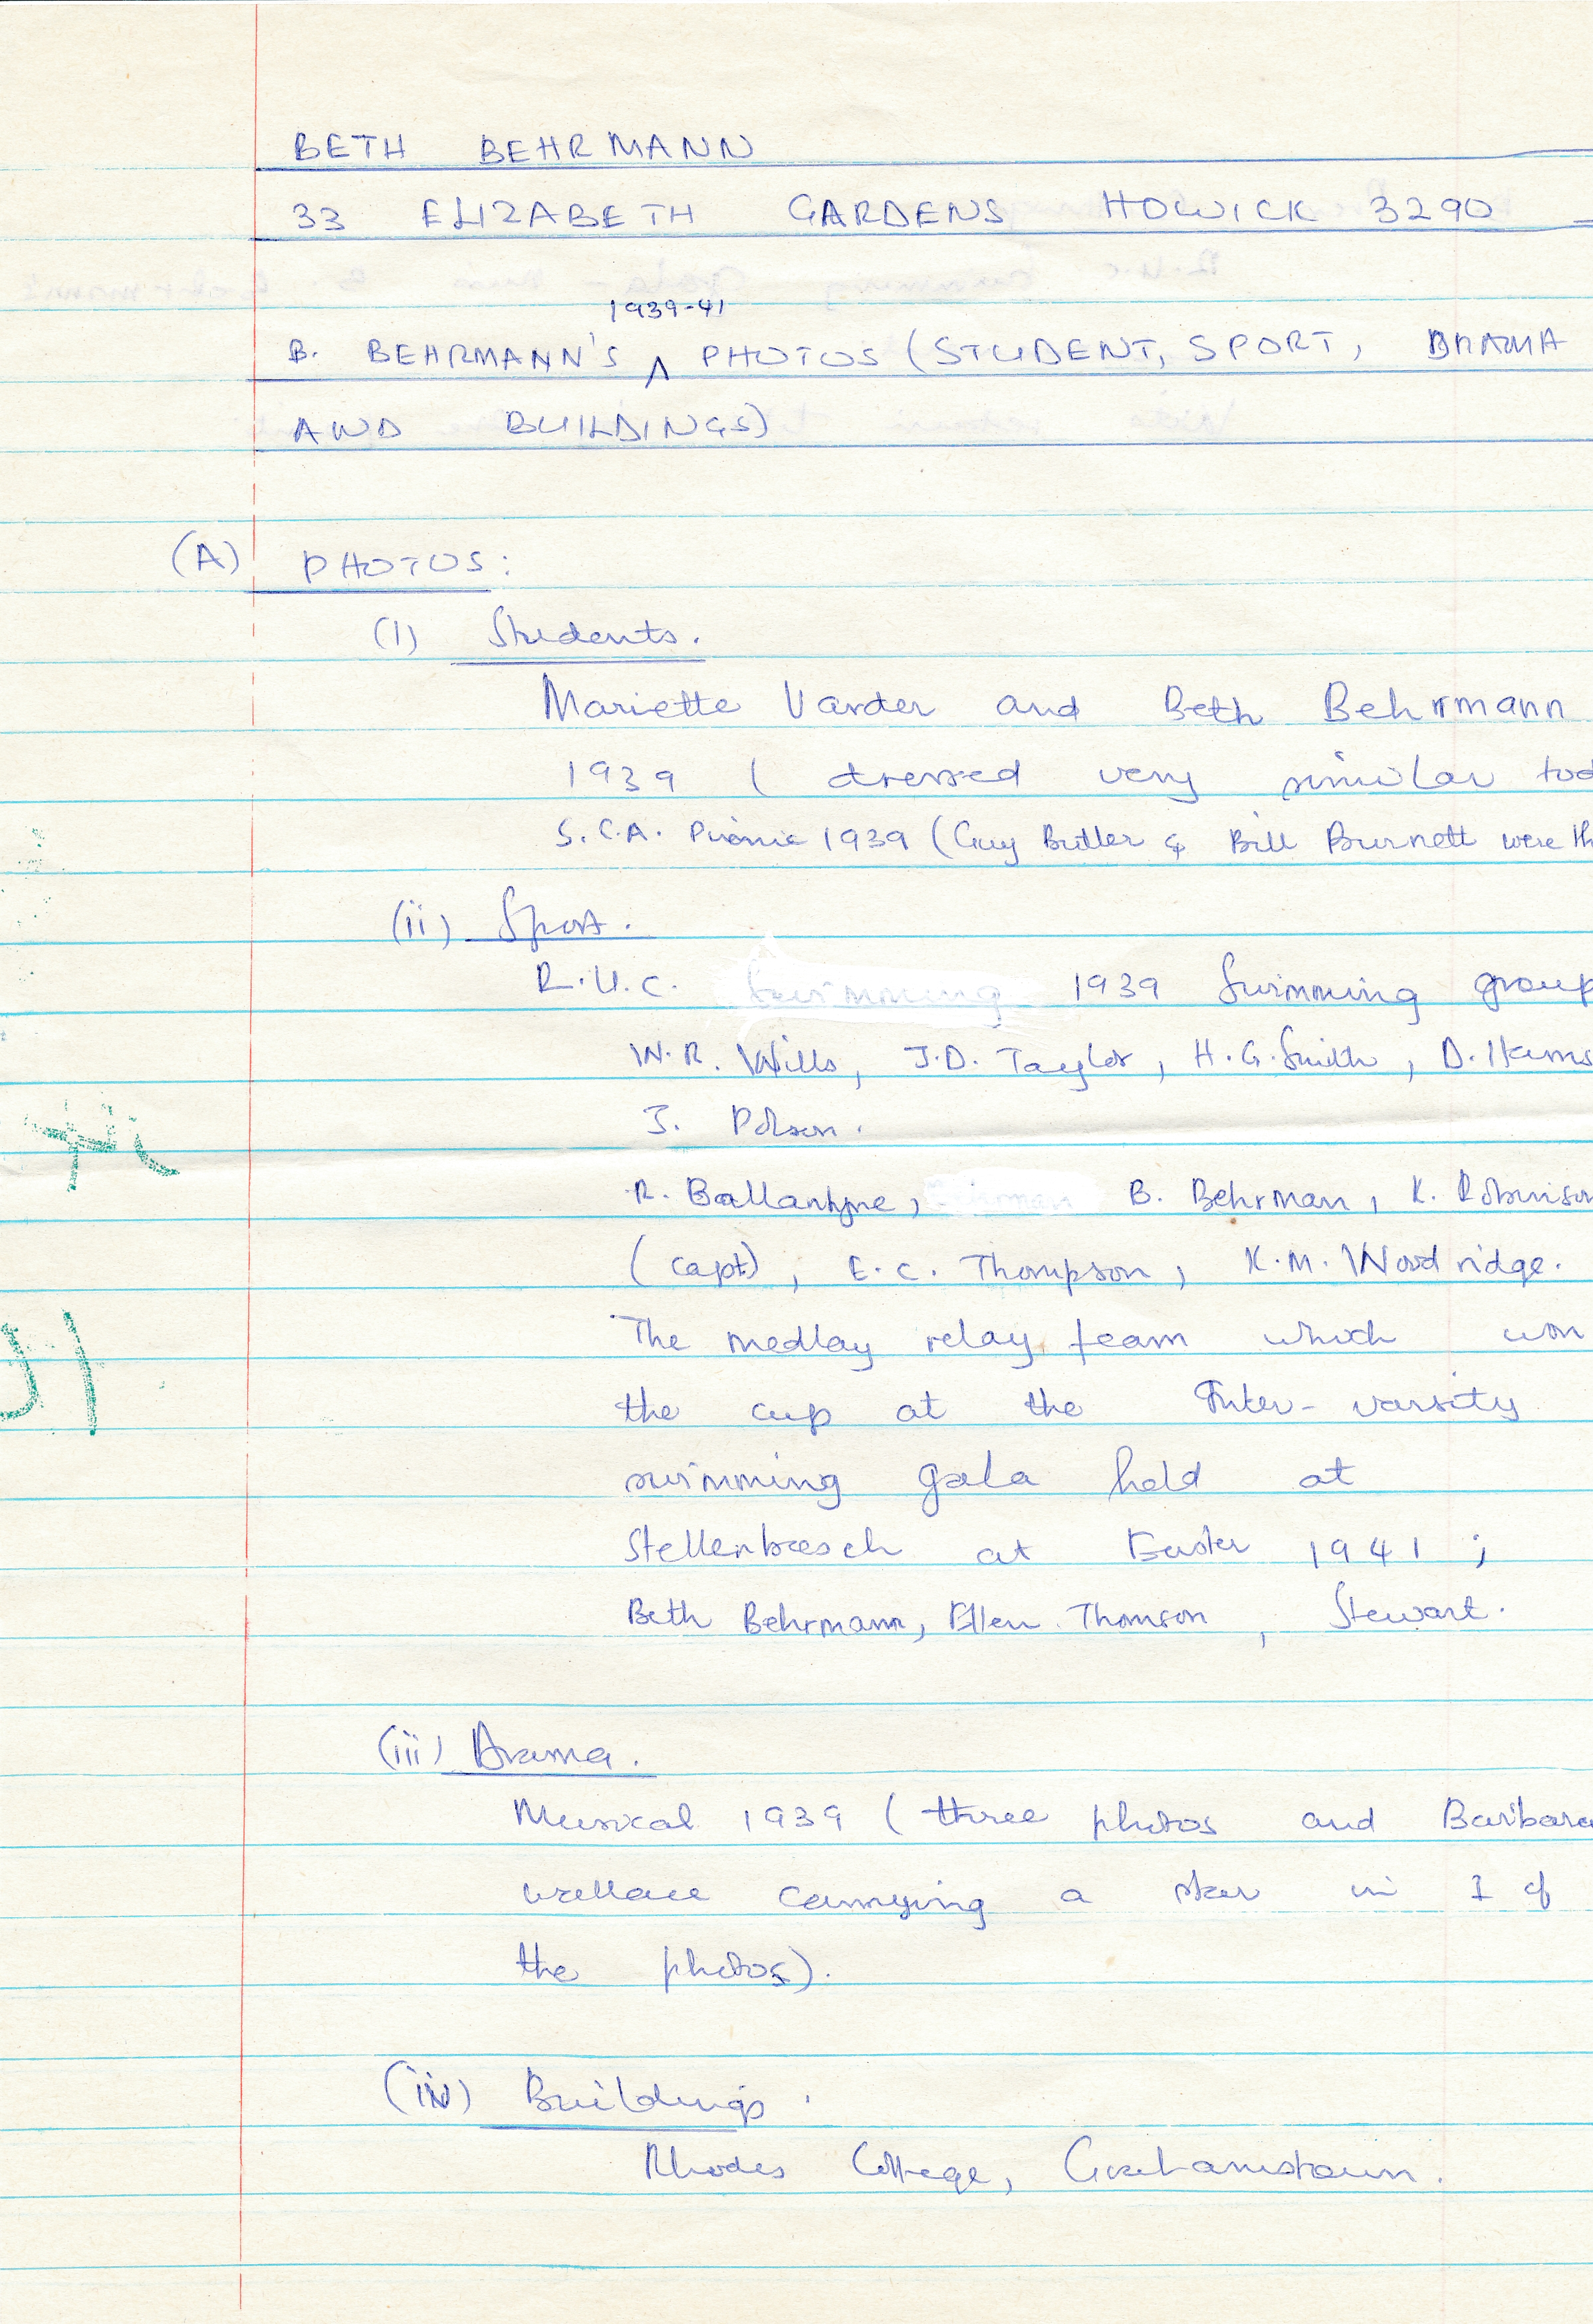 BETH BEHRMANN
33 ELIZABETH GARDENS HOWICK 3290
1939-41
B. BEHRMANN'S ^ PHOTOS (STUDENT, SPORT, DRAMA
AND BUILDINGS)
(A) PHOTOS:
(1) Students.
Mariette Varder and Beth Behrmann
1939 ( dressed very similar tod
S.C.A. Picnic 1939 (Guy Butler & Bill Burnett were th
(ii) Sport.
R.U.C. 1939 Swimming group
W.R. Wills, J.D. Taylor, H.G. Smith, D.
J. Polson.
R. Ballantyne, B. Behrman, K. Robinson
(capt), E.C. Thompson, K.M. Woodridge.
The medlay relay team which won
the cup at the Inter-varsity
swimming gala held at
Stellenbosch at Easter 1941 ;
Beth Behrmann, Ellen Thomson , Stewart.
(iii) Drama.
Musical 1939 ( three photos and Barbara
wallace carrying a star in 1 of
the photos).
(iv) Buildings.
Rhodes College, Grahamstown.